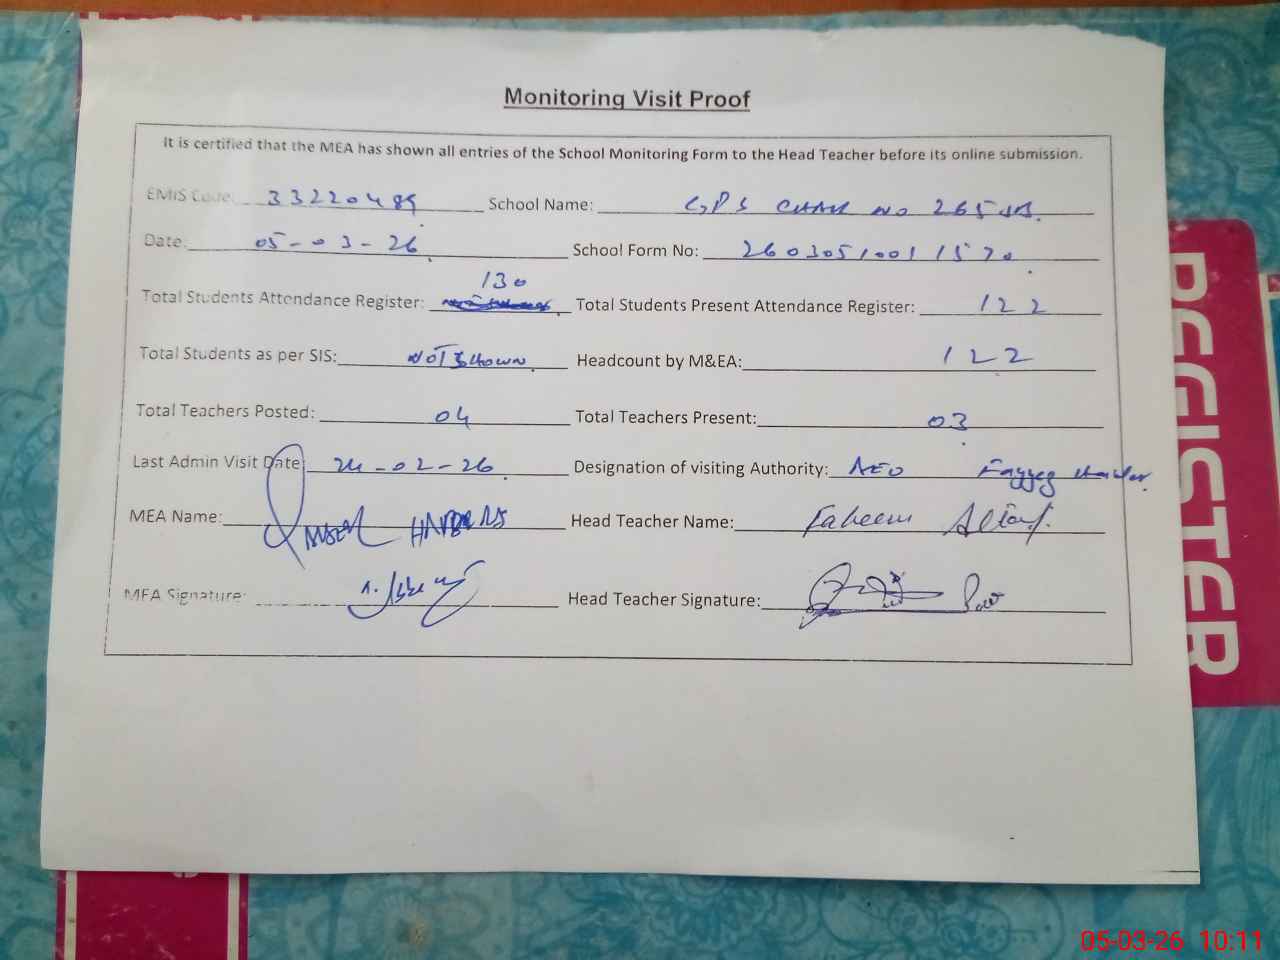 Monitoring Visit Proof
It is certified that the MEA has shown all entries of the School Monitoring Form to the Head Teacher before its online submission.
EMIS Code: 33220489 School Name: GPS CHAK NO 265 JB.
Date: 05-03-26 School Form No: 26030510011570
Total Students Attendance Register: 130 Total Students Present Attendance Register: 122
Total Students as per SIS: NOT SHOWN Headcount by M&EA: 122
Total Teachers Posted: 04 Total Teachers Present: 03
Last Admin Visit Date: 24-02-26 Designation of visiting Authority: AEO
MEA Name: Head Teacher Name: Faheem Altaf.
MEA Signature: Head Teacher Signature:
REGISTER
05-03-26 10:11